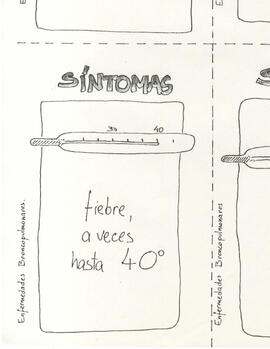 SÍNTOMAS
40
fiebre,
a veces
hasta 40°
Enfermedades Broncopulmonares.
Enfermedades Broncopulmonares